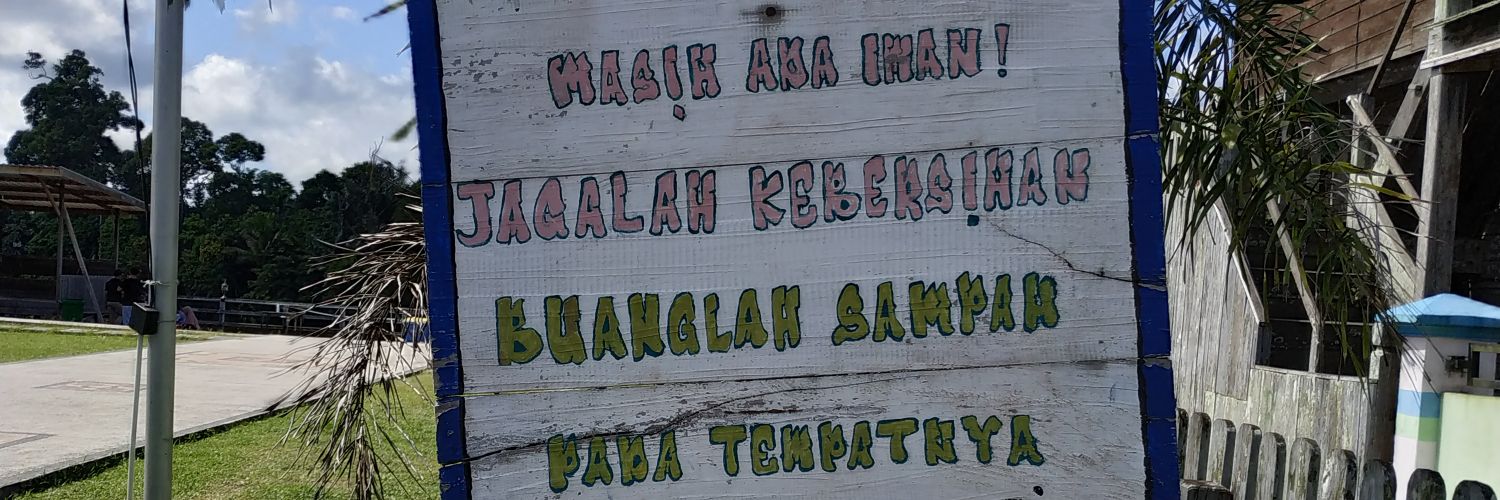 MASIH ADA IMAN!
JAGALAH KEBERSIHAN
BUANGLAH SAMPAH
PADA TEMPATNYA